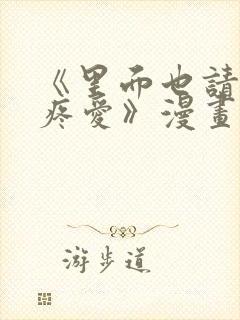 《里而也請
疼愛》漫畫
游步道